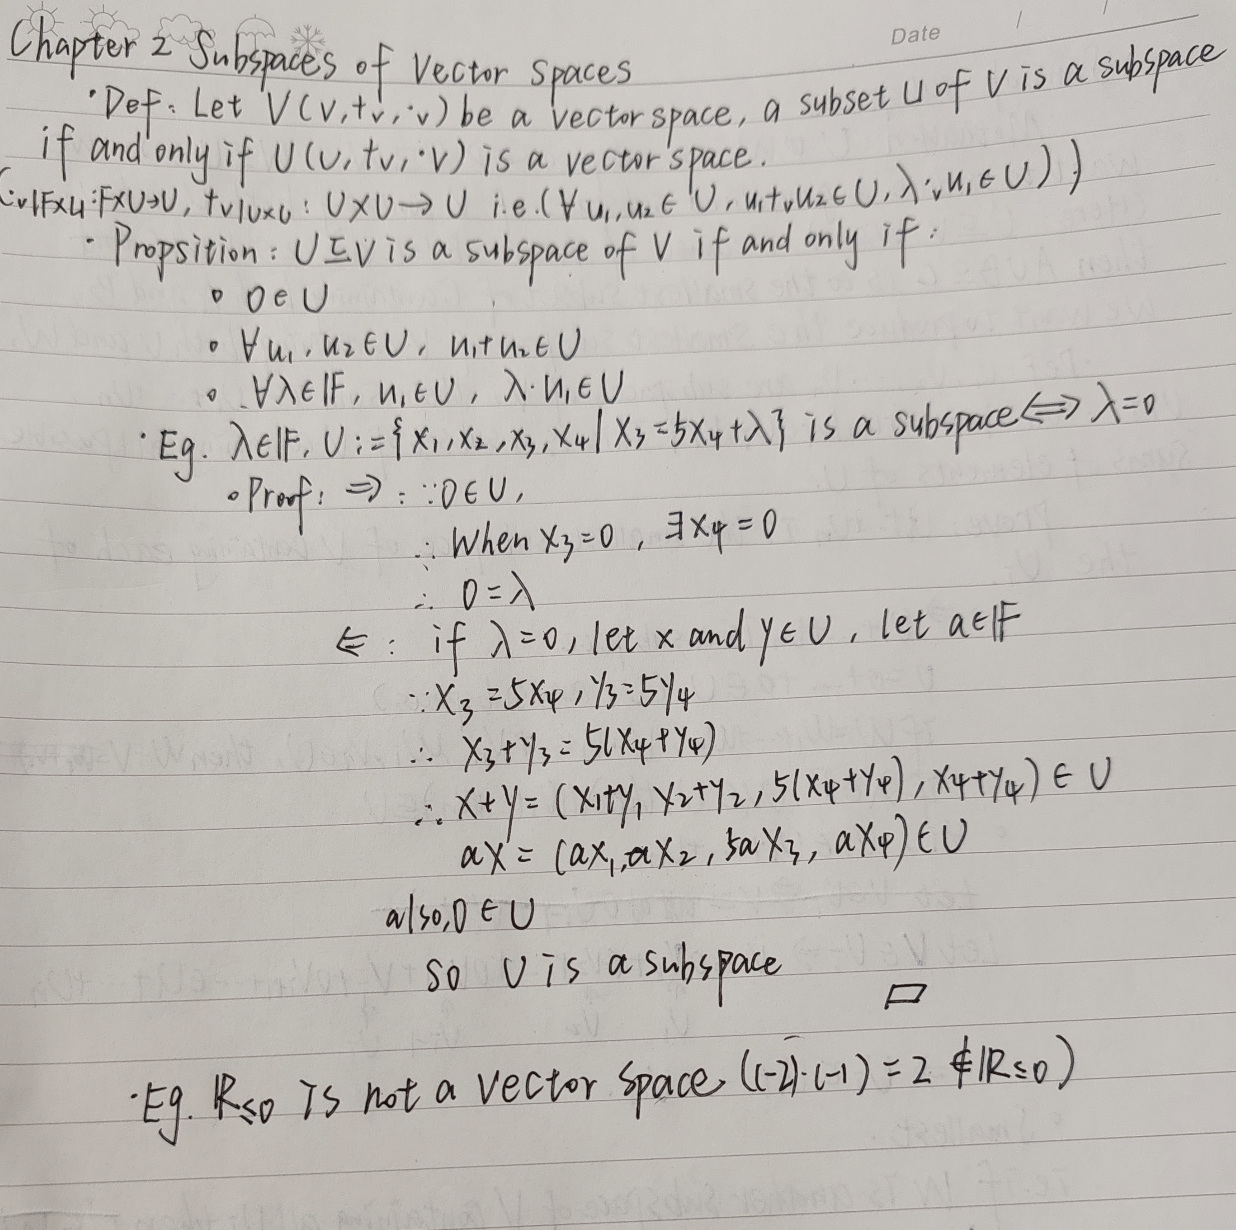 Date
Chapter 2 Subspaces of Vector Spaces
· Def: Let V(V, +ᵥ, ·ᵥ) be a vector space, a subset U of V is a subspace
if and only if U(U, +ᵥ, ·V) is a vector space.
(·ᵥ|F×U: F×U→U, +ᵥ|U×U: U×U→U i.e.(∀u₁,u₂∈U, u₁+ᵥu₂∈U, λ·ᵥu₁∈U))
· Propsition: U⊆V is a subspace of V if and only if:
∘ 0∈U
∘ ∀u₁, u₂∈U, u₁+u₂∈U
∘ ∀λ∈𝔽, u₁∈U, λ·u₁∈U
· Eg. λ∈𝔽, U:={x₁,x₂,x₃,x₄|x₃=5x₄+λ} is a subspace⟺λ=0
∘ Proof: ⇒: ∵0∈U,
∴ When x₃=0, ∃x₄=0
∴ 0=λ
⇐: if λ=0, let x and y∈U, let a∈𝔽
∵x₃=5x₄, y₃=5y₄
∴ x₃+y₃=5(x₄+y₄)
∴ x+y=(x₁+y₁ x₂+y₂, 5(x₄+y₄), x₄+y₄)∈U
ax=(ax₁,ax₂, 5ax₃, ax₄)∈U
also,0∈U
so U is a subspace
□
· Eg. ℝ≤0 is not a vector space ((-2)·(-1)=2∉ℝ≤0)